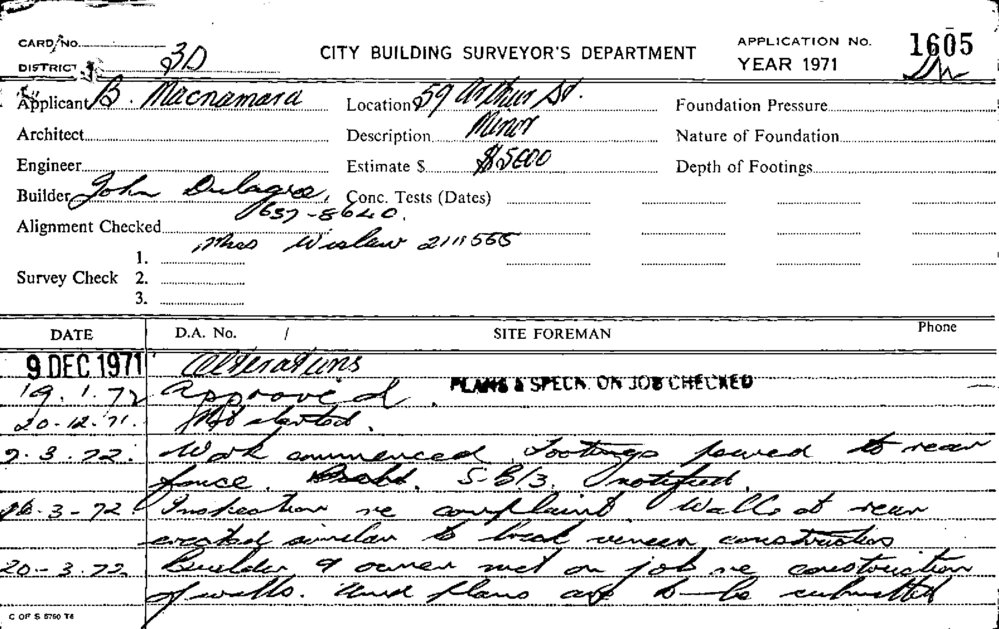 CARD NO. 3D CITY BUILDING SURVEYOR'S DEPARTMENT APPLICATION No. 1605
DISTRICT YEAR 1971
Applicant B. Macnamara Location 59 Arthur St. Foundation Pressure
Architect Description Minor Nature of Foundation
Engineer Estimate $ $5000 Depth of Footings
Builder John Conc. Tests (Dates)
637-8640.
Alignment Checked
Mrs 211 5555
1.
Survey Check 2.
3.
DATE D.A. No. / SITE FOREMAN Phone
9 DEC 1971 Alterations
19.1.72 Approved. PLANS & SPECN. ON JOB CHECKED
20-12-71. Not started.
9.3.72. Work commenced. Footings poured to rear
fence. S-B/3. notified.
16-3-72 Inspection re complaint. Walls at rear
erected similar to brick veneer construction
20-3.72. Builder & owner met on job re construction
of walls. plans are to be submitted
C OF S 5750 T4